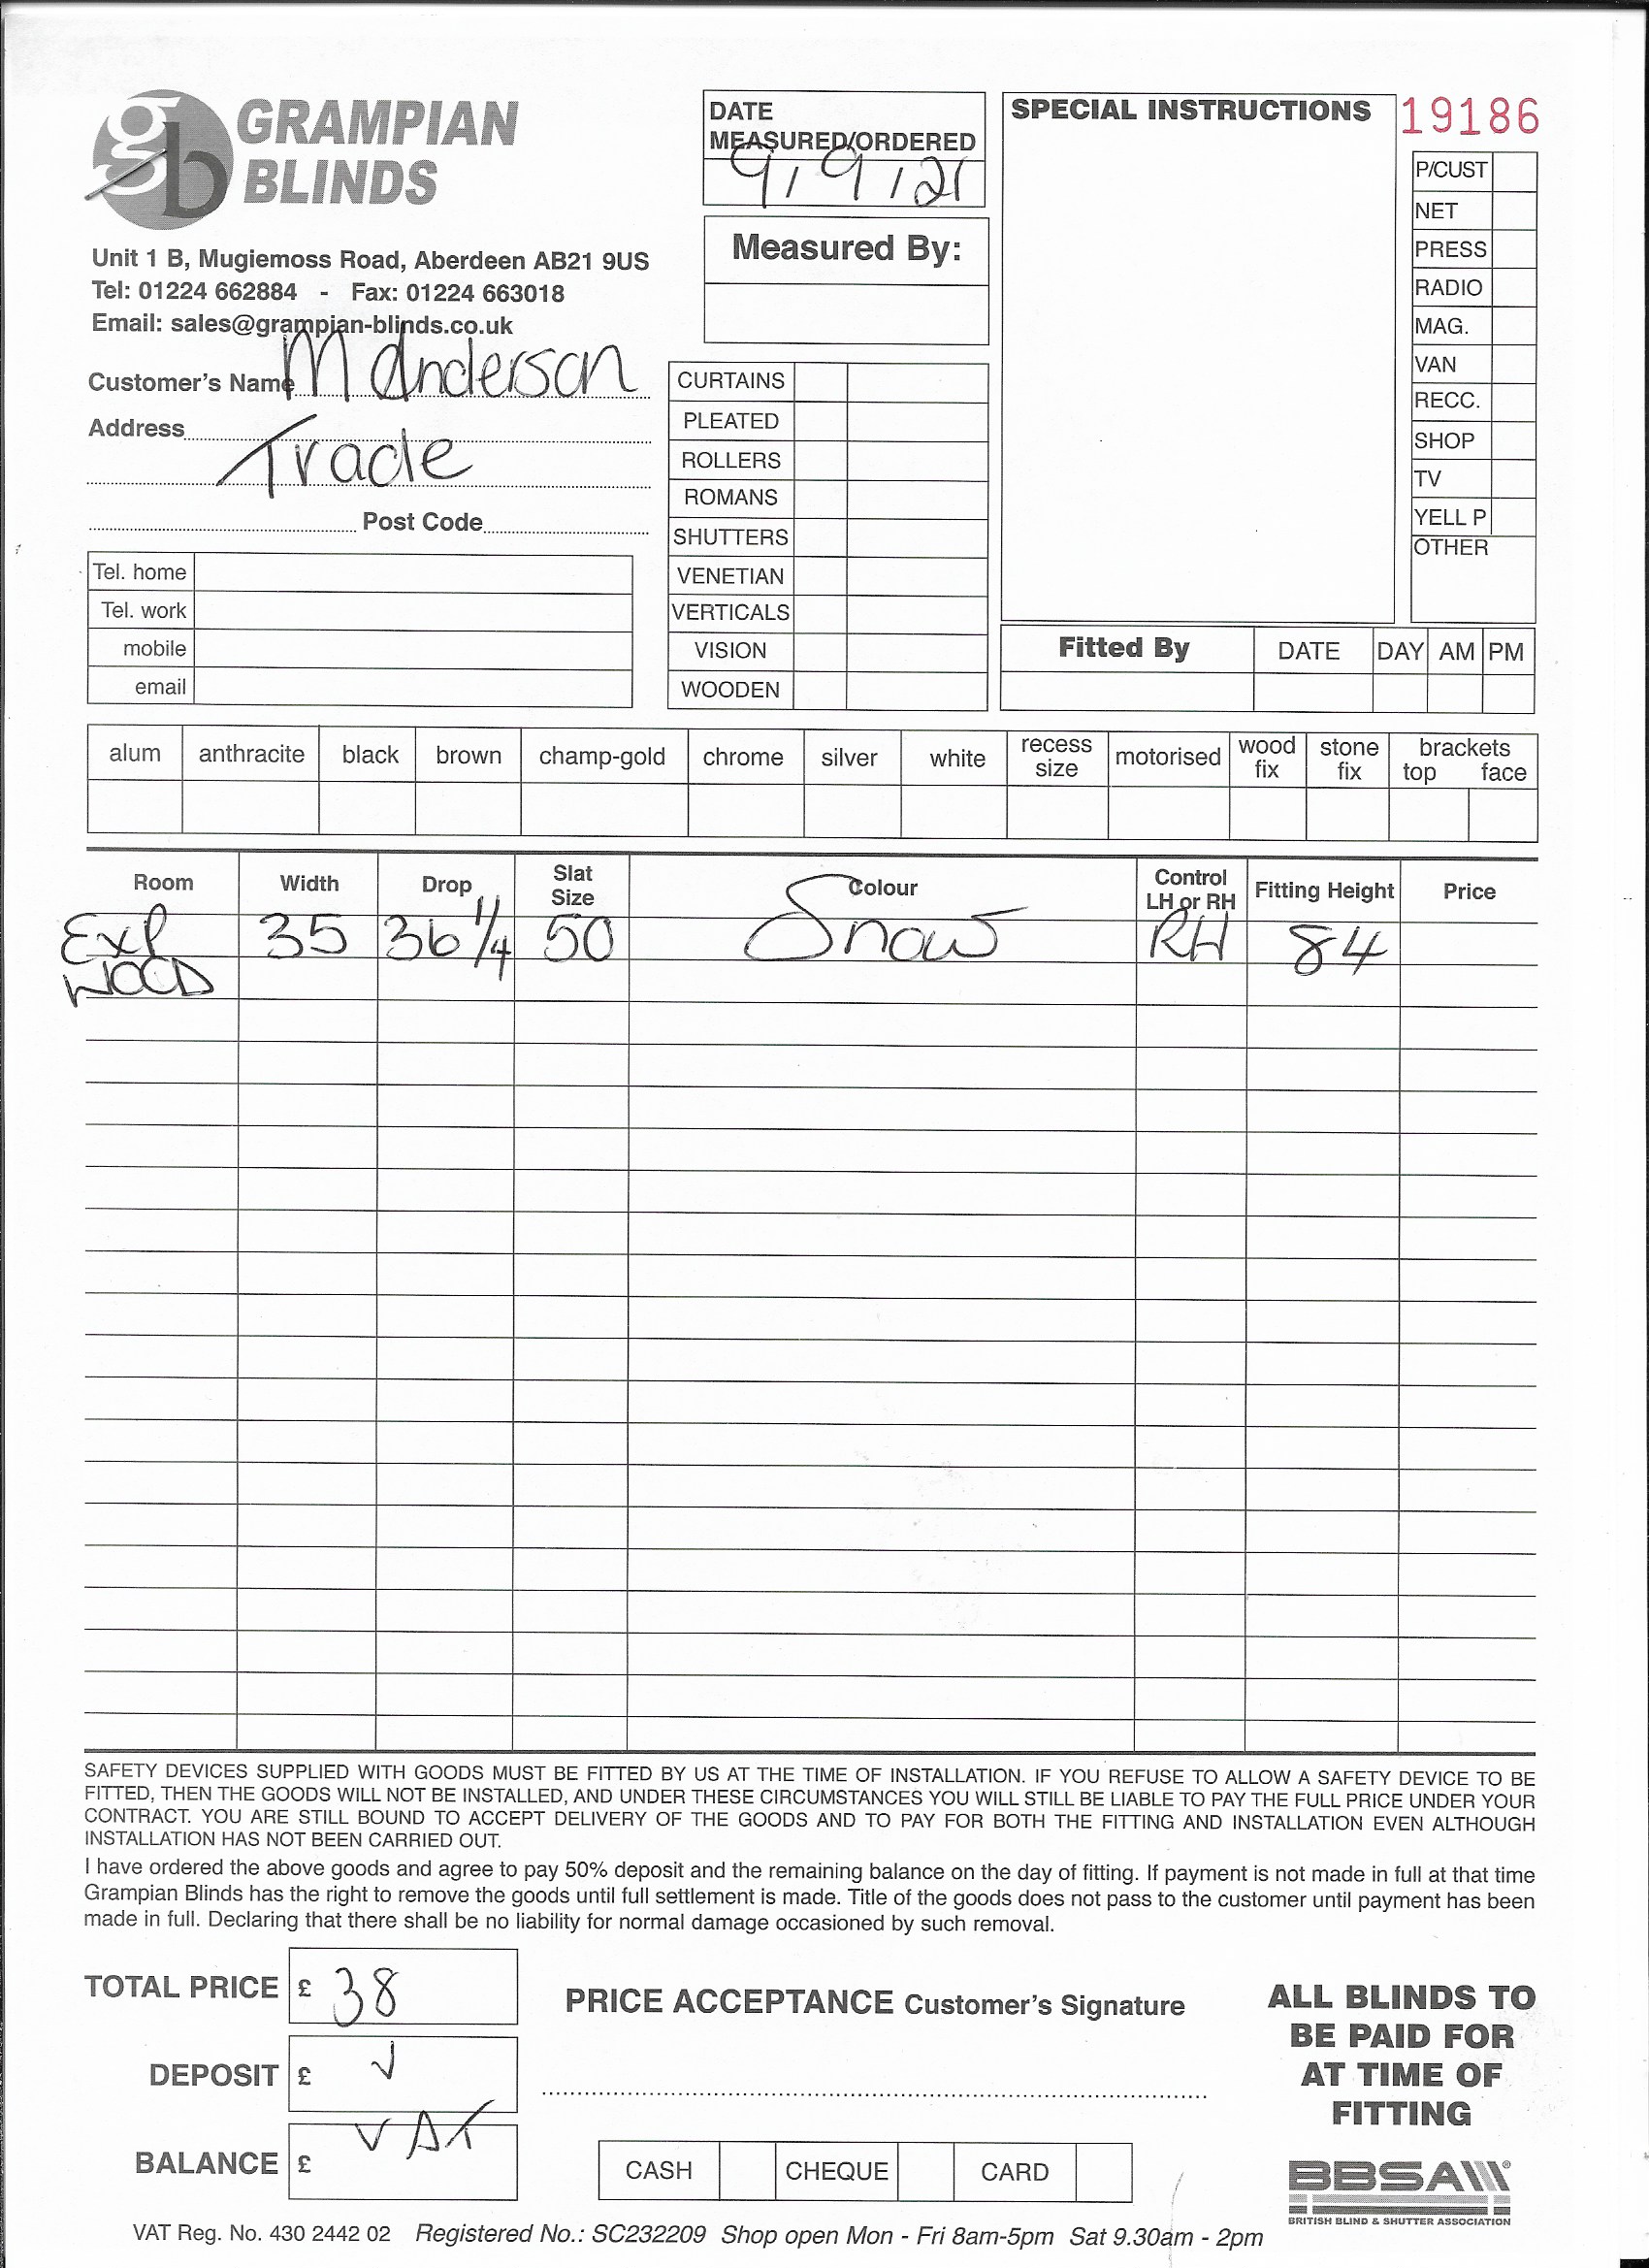 gb GRAMPIAN
BLINDS
Unit 1 B, Mugiemoss Road, Aberdeen AB21 9US
Tel: 01224 662884 - Fax: 01224 663018
Email: sales@grampian-blinds.co.uk
Customer's Name M Anderson
Address
Trade
Post Code
Tel. home
Tel. work
mobile
email
DATE
MEASURED/ORDERED
9/9/21
Measured By:
CURTAINS
PLEATED
ROLLERS
ROMANS
SHUTTERS
VENETIAN
VERTICALS
VISION
WOODEN
SPECIAL INSTRUCTIONS
19186
P/CUST
NET
PRESS
RADIO
MAG.
VAN
RECC.
SHOP
TV
YELL P
OTHER
Fitted By DATE DAY AM PM
alum anthracite black brown champ-gold chrome silver white recess size motorised wood fix stone fix brackets top face
Room Width Drop Slat Size Colour Control LH or RH Fitting Height Price
Exp 35 36 1/4 50 Snow RH 84
WOOD
SAFETY DEVICES SUPPLIED WITH GOODS MUST BE FITTED BY US AT THE TIME OF INSTALLATION. IF YOU REFUSE TO ALLOW A SAFETY DEVICE TO BE
FITTED, THEN THE GOODS WILL NOT BE INSTALLED, AND UNDER THESE CIRCUMSTANCES YOU WILL STILL BE LIABLE TO PAY THE FULL PRICE UNDER YOUR
CONTRACT. YOU ARE STILL BOUND TO ACCEPT DELIVERY OF THE GOODS AND TO PAY FOR BOTH THE FITTING AND INSTALLATION EVEN ALTHOUGH
INSTALLATION HAS NOT BEEN CARRIED OUT.
I have ordered the above goods and agree to pay 50% deposit and the remaining balance on the day of fitting. If payment is not made in full at that time
Grampian Blinds has the right to remove the goods until full settlement is made. Title of the goods does not pass to the customer until payment has been
made in full. Declaring that there shall be no liability for normal damage occasioned by such removal.
TOTAL PRICE £ 38
DEPOSIT £
BALANCE £ VAT
PRICE ACCEPTANCE Customer's Signature
CASH CHEQUE CARD
ALL BLINDS TO
BE PAID FOR
AT TIME OF
FITTING
BBSA
BRITISH BLIND & SHUTTER ASSOCIATION
VAT Reg. No. 430 2442 02 Registered No.: SC232209 Shop open Mon - Fri 8am-5pm Sat 9.30am - 2pm